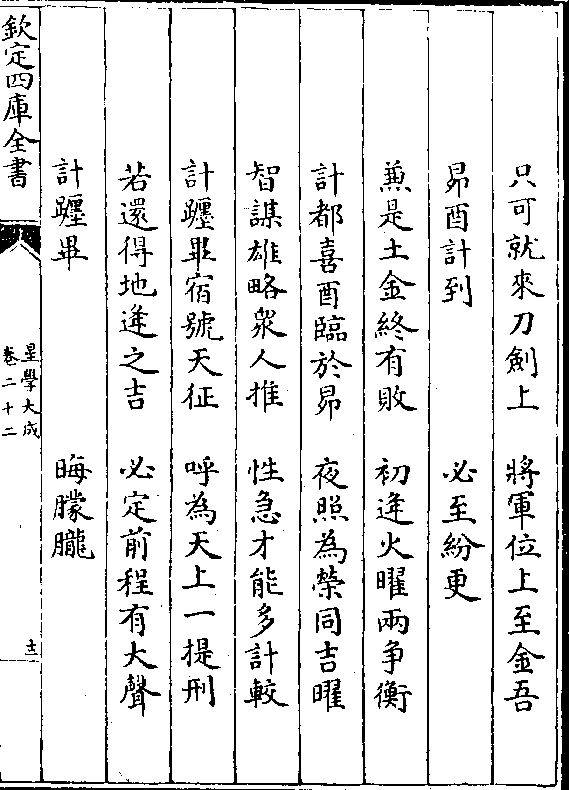 只可就來刀劍上 將軍位上至金吾
昴酉計到 必至紛更
兼是土金終有敗 初逢火曜兩争衡
計都喜酉臨於昴 夜照為榮同吉曜
智謀雄略衆人推 性急才能多計較
計躔畢宿號天征 呼為天上一提刑
若還得地逢之吉 必定前程有大聲
計躔畢 晦朦朧
欽定四庫全書
星學大成
卷二十二
十三